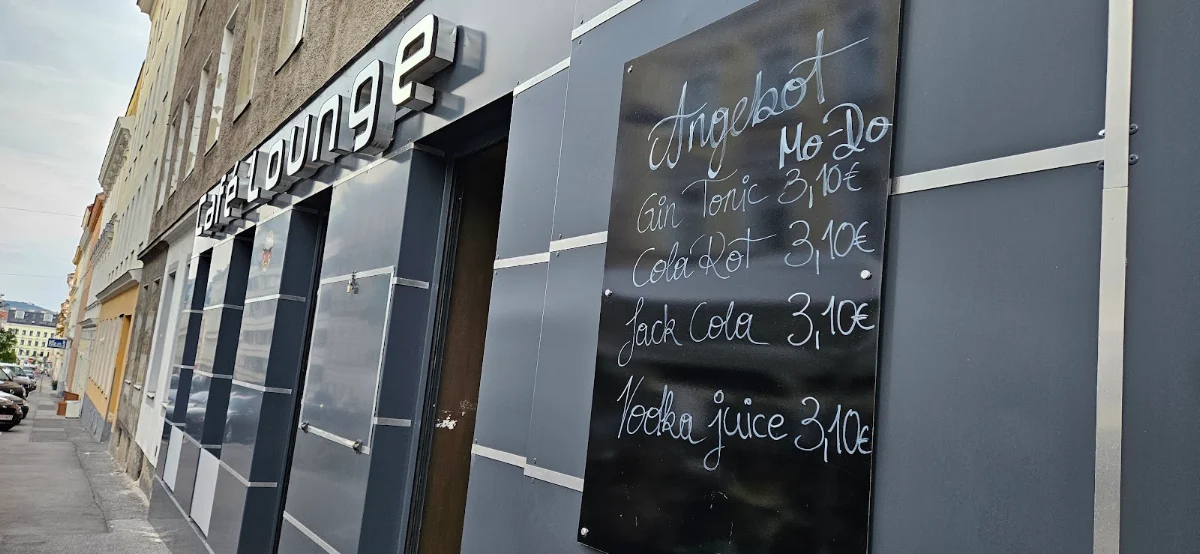 Café Lounge
Angebot
Mo-Do
Gin Tonic 3,10€
Cola Rot 3,10€
Jack Cola 3,10€
Vodka juice 3,10€